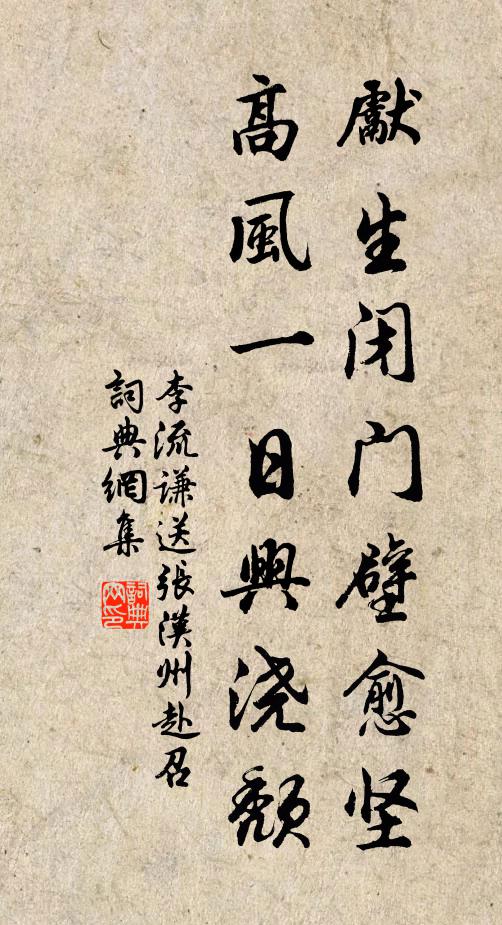 獻生闭門壁愈坚
高風一日興浇颓
李流谦送張漢州赴召
詞典網集
詞典網印